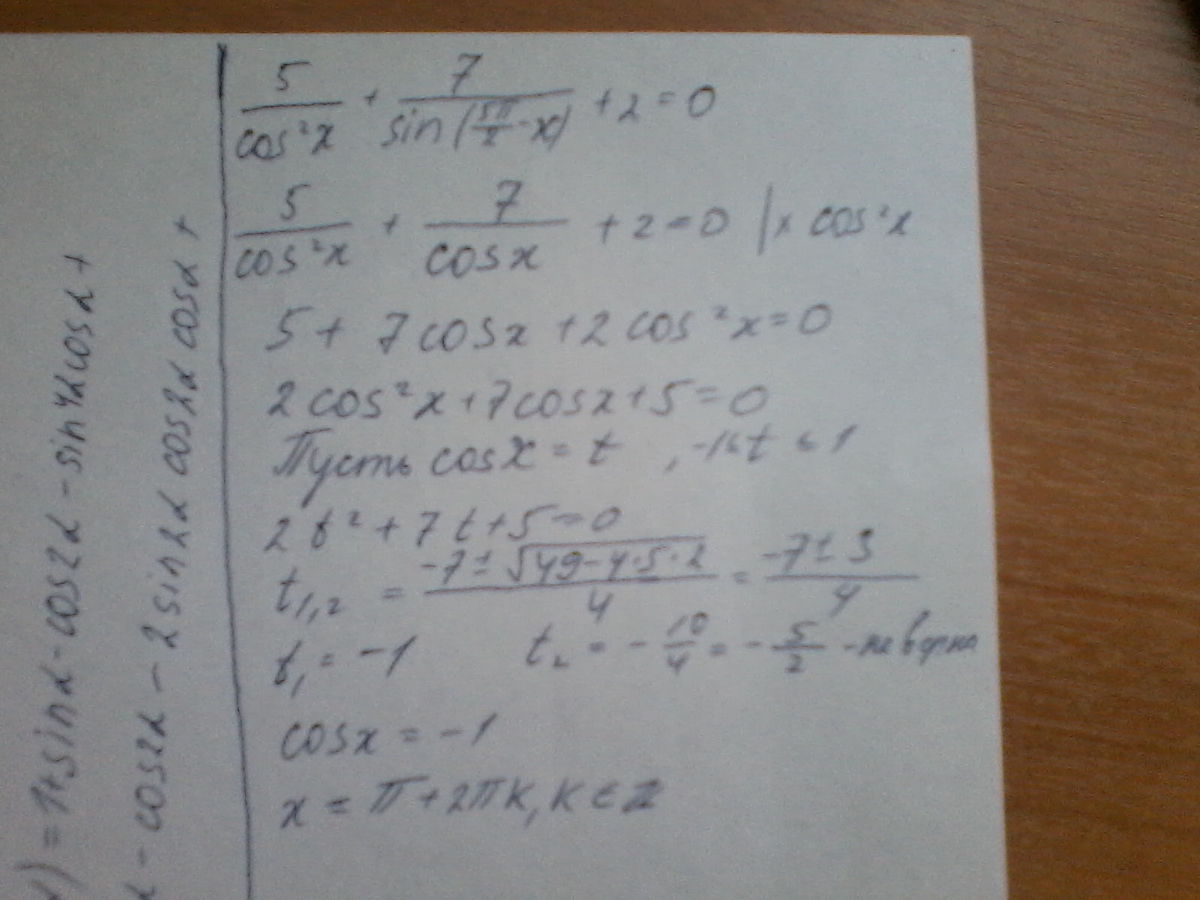 5/cos²x + 7/sin(5π/2 - x) + 2 = 0
5/cos²x + 7/cosx + 2 = 0 |× cos²x
5 + 7cosx + 2cos²x = 0
2cos²x + 7cosx + 5 = 0
Пусть cosx = t , -1 ≤ t ≤ 1
2t² + 7t + 5 = 0
t₁,₂ = (-7 ± √(49-4·5·2))/4 = (-7 ± 3)/4
t₁ = -1 t₂ = -10/4 = -5/2 -
cosx = -1
x = π + 2πk, k ∈ Z
) = 1+sinα - cos2α - sin4αcosα +
- cos2α - 2sin2α cos2α cosα +